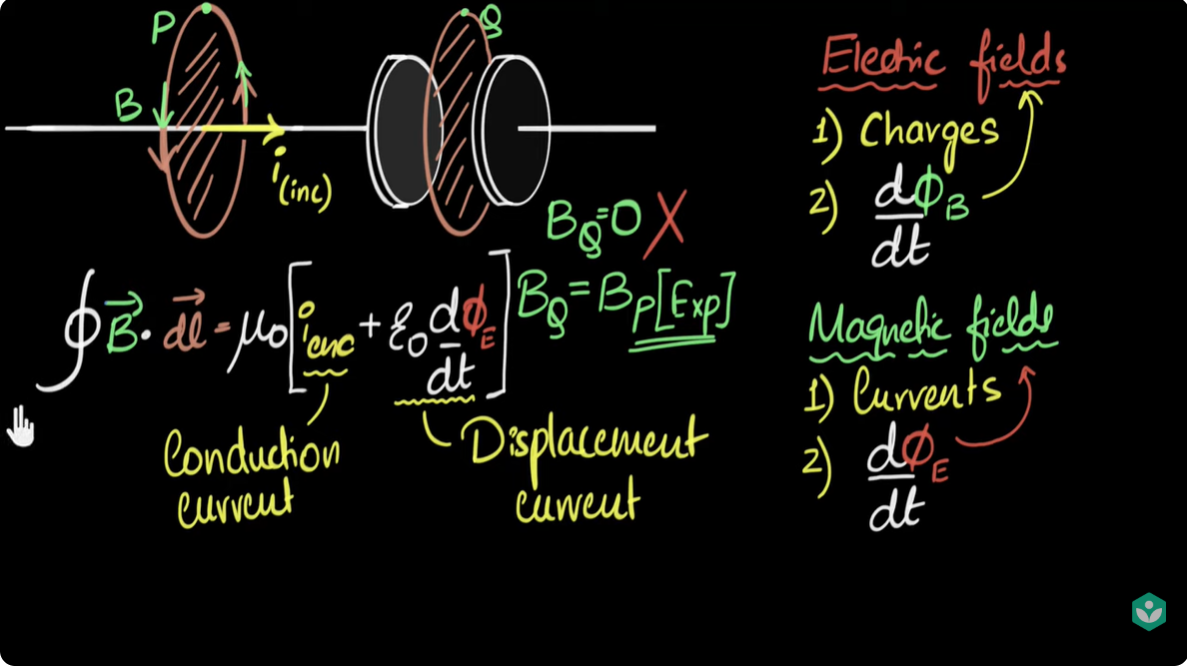 P
Q
B
i(inc)
B_Q=0 X
∮ B⃗ · dl⃗ = μ₀ [ i_enc + ε₀ dϕ_E/dt ]
B_Q = B_P [Exp]
Conduction
current
Displacement
current
Electric fields
1) Charges
2) dϕ_B/dt
Magnetic fields
1) Currents
2) dϕ_E/dt